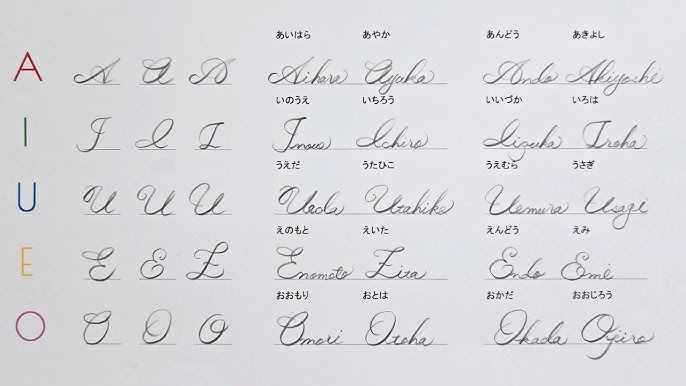 あいはら あやか あんどう あきよし
A A A A Aihara Ayaka Ando Akiyoshi
いのうえ いちろう いいづか いろは
I I I I Inoue Ichiro Iizuka Iroha
うえだ うたひこ うえむら うさぎ
U U U U Ueda Utahiko Uemura Usagi
えのもと えいた えんどう えみ
E E E E Enomoto Eita Endo Emi
おおもり おとは おかだ おおじろう
O O O O Omori Otoha Okada Ojiro